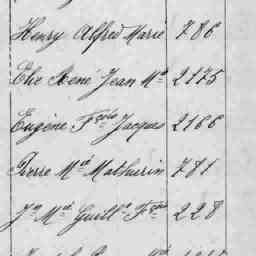 Henry Alfred Marie 786
Elie René Jean Mie 2175
Eugène Fçois Jacques 2166
Pierre Mie Mathurin 781
Jn Mie Guille Fçois 228